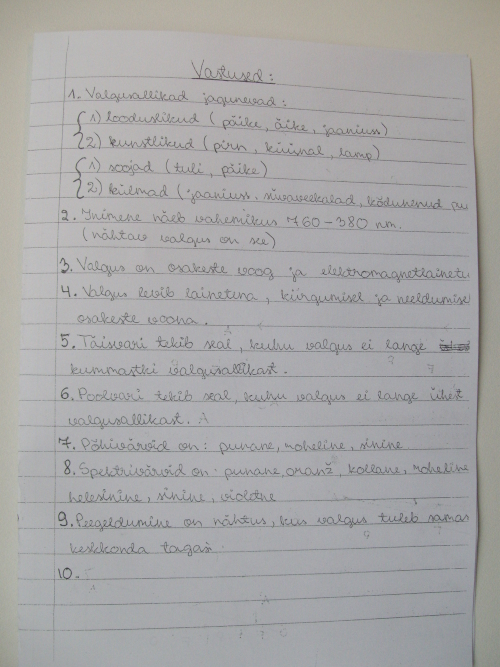 Vastused:
1. Valgusallikad jagunevad:
1) looduslikud (päike, äike, jaaniuss)
2) kunstlikud (pirn, küünal, lamp)
1) soojad (tuli, päike)
2) külmad (jaaniuss, süvaveekalad, kõdunenud pu
2. Inimene näeb vahemikus 760-380 nm.
(nähtav valgus on see)
3. Valgus on osakeste voog ja elektromagnetlainetu
4. Valgus levib lainetena, kiirgumisel ja neeldumise
osakeste voona.
5. Täisvari tekib seal, kuhu valgus ei lange
kummastki valgusallikast.
6. Poolvari tekib seal, kuhu valgus ei lange ühest
valgusallikast.
7. Põhivärvid on: punane, roheline, sinine
8. Spektrivärvid on: punane, oranž, kollane, roheline
helesinine, sinine, violetne
9. Peegeldumine on nähtus, kus valgus tuleb samas
keskkonda tagasi.
10.